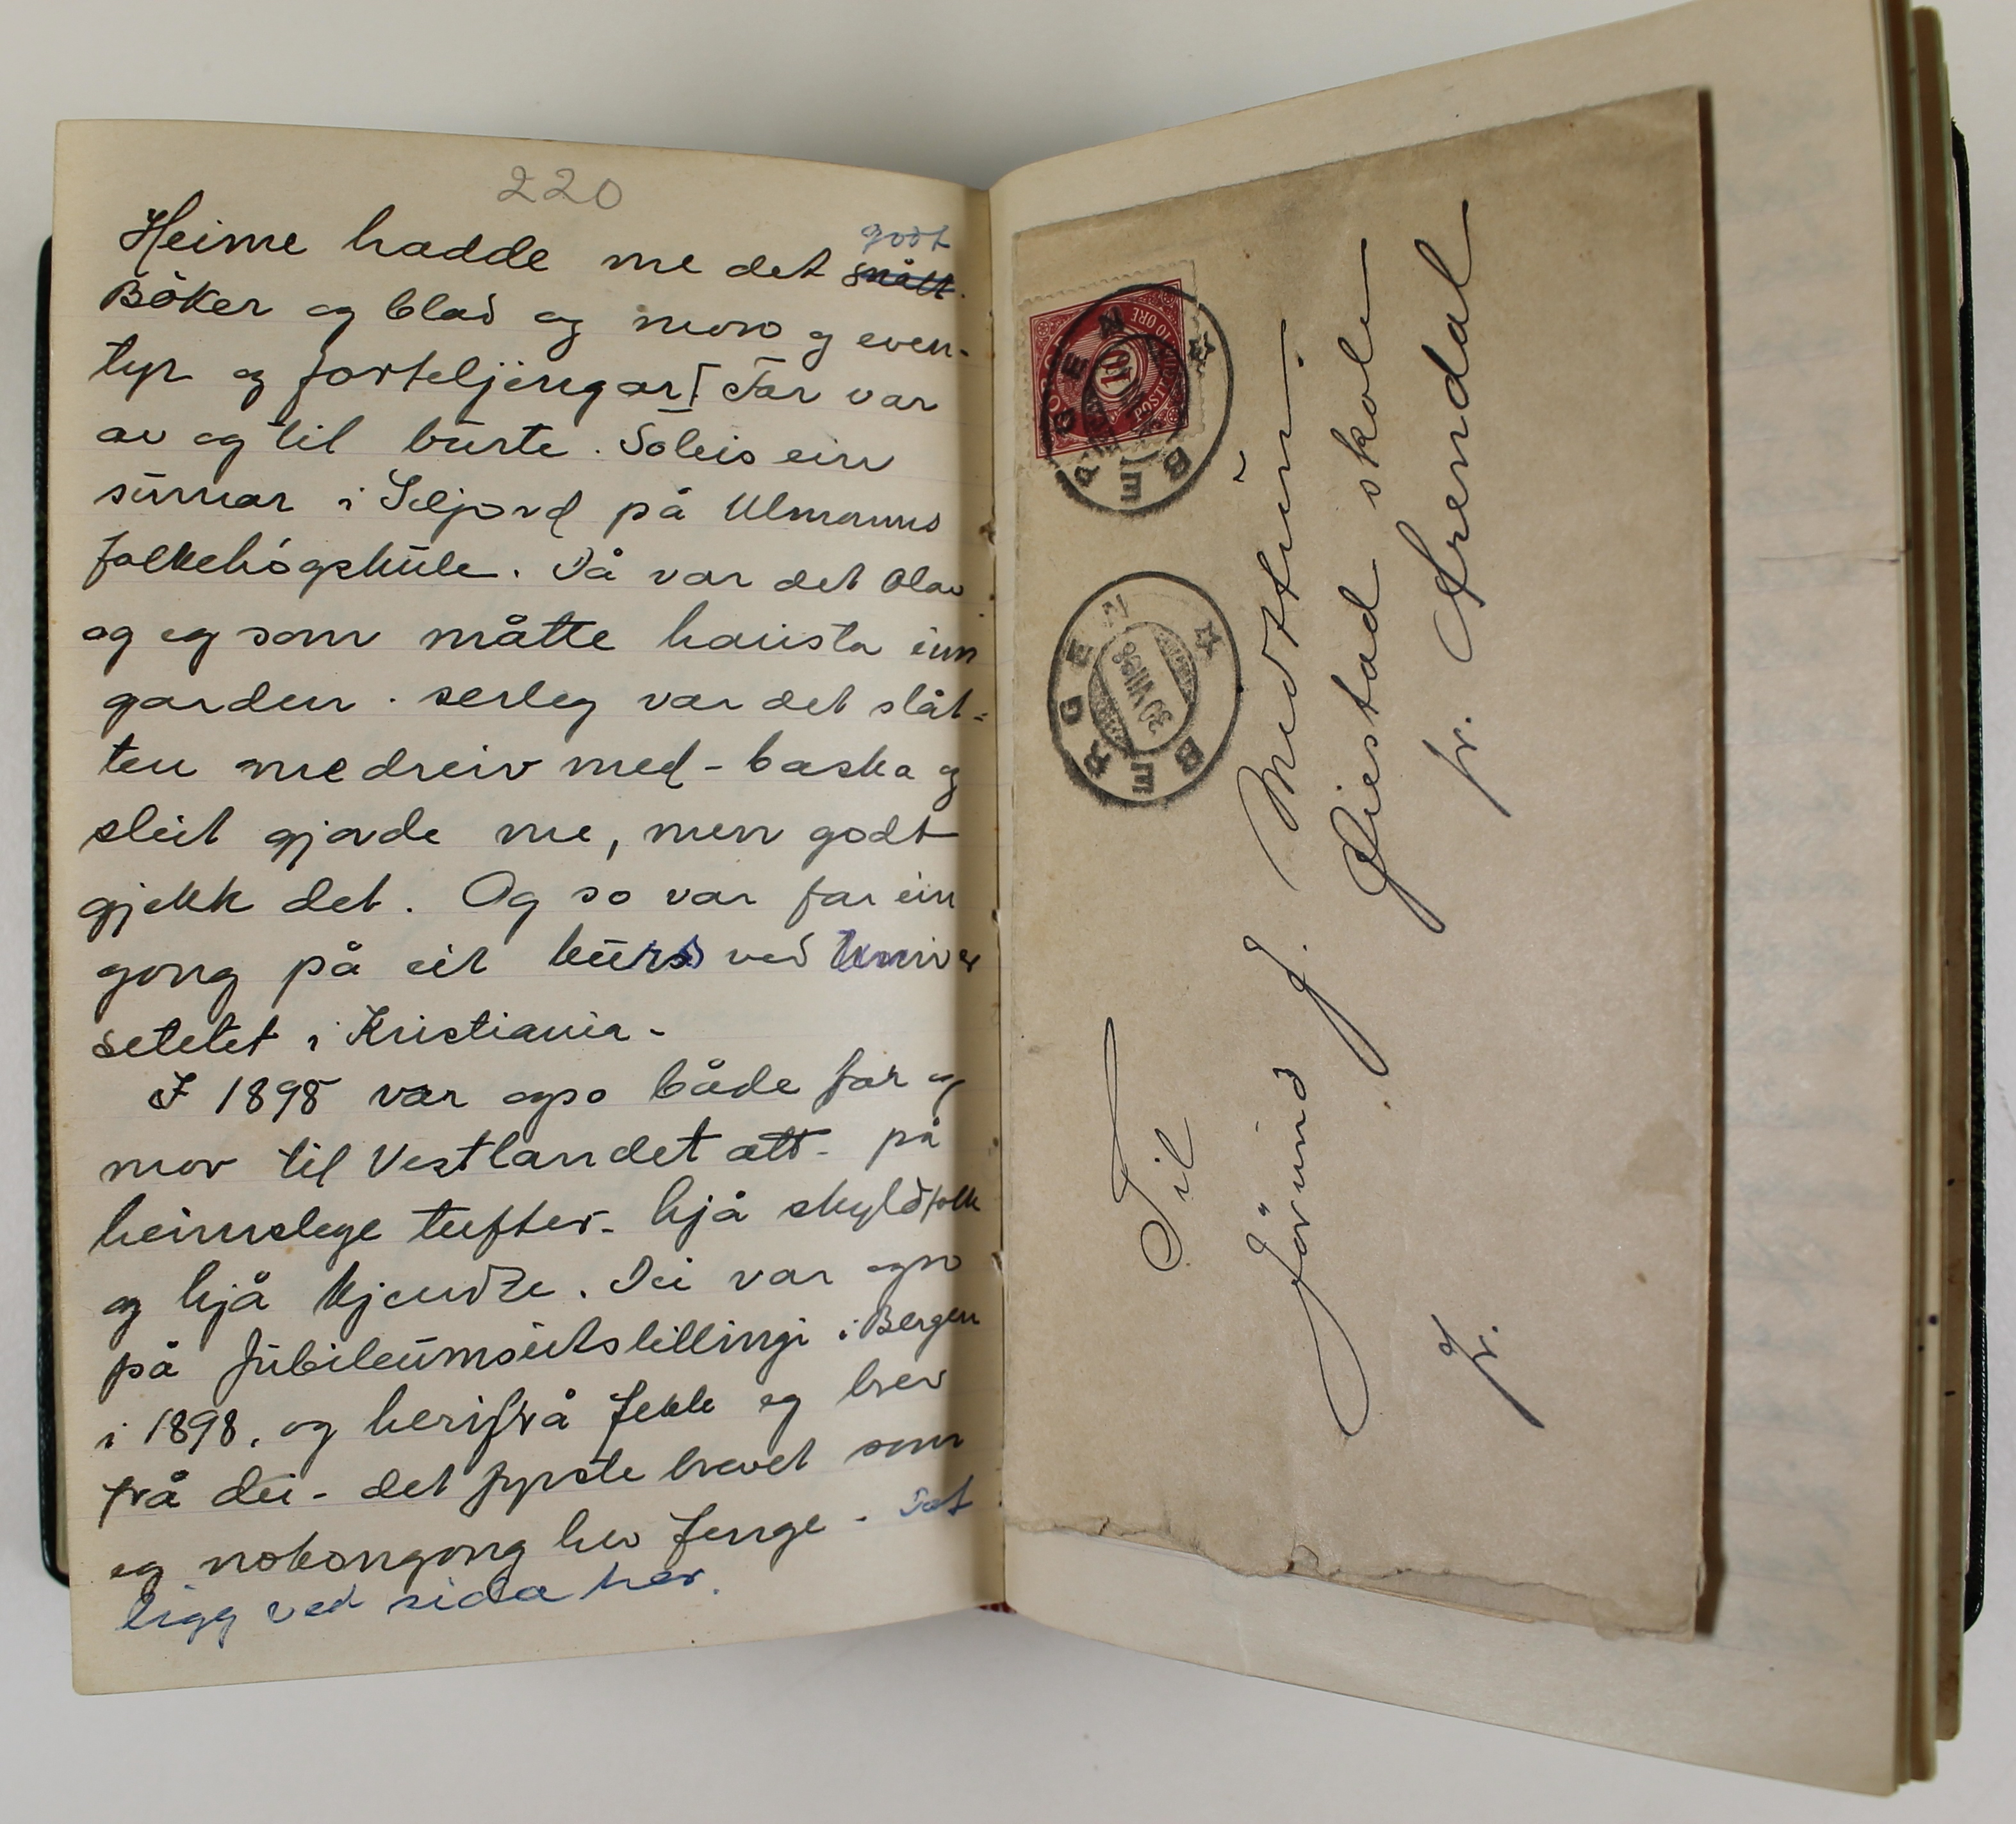 220
Heime hadde me det godt snålt.
Böker og blad og moro og even-
tyr og forteljingar! Far var
av og til burte. Soleis ein
sumar i Seljord på Ulmanns
folkehögskule. Då var det Olav
og eg som måtte hausta inn
garden. serleg var det slåt-
ten me dreiv med - baska og
sleit gjorde me, men godt
gjekk det. Og so var far ein
gong på eit kurs ved Univer
setetet i Kristiania -
I 1898 var ogso både far og
mor til Vestlandet att - på
heimslege tufter - hjå skyldfolk
og hjå kjendte. Dei var ogso
på Jubileumsutstillingi i Bergen
i 1898, og herifrå fekk eg brev
frå dei - det fyrste brevet som
eg nokongong hev fenge. Det
ligg ved sida her.
BERGEN
POSTFRIM 10 ØRE
10
BERGEN
30 VII 98
Til
Jörund J. Midttun.
fr. Øiestad skole
fr. Arendal